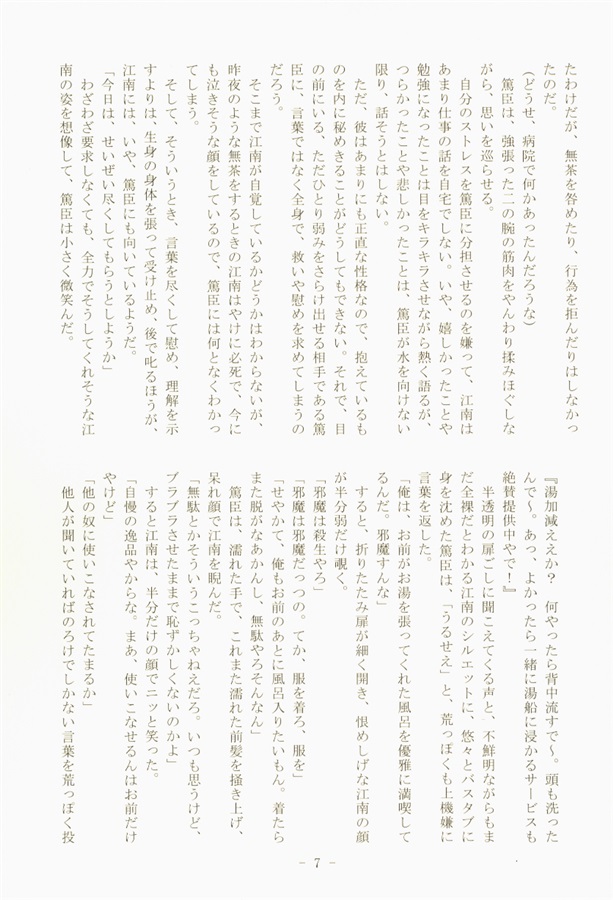 たわけだが、無茶を咎めたり、行為を拒んだりはしなかっ
たのだ。
(どうせ、病院で何かあったんだろうな)
篤臣は、強張った二の腕の筋肉をやんわり揉みほぐしな
がら、思いを巡らせる。
自分のストレスを篤臣に分担させるのを嫌って、江南は
あまり仕事の話を自宅でしない。いや、嬉しかったことや
勉強になったことは目をキラキラさせながら熱く語るが、
つらかったことや悲しかったことは、篤臣が水を向けない
限り、話そうとはしない。
ただ、彼はあまりにも正直な性格なので、抱えているも
のを内に秘めきることがどうしてもできない。それで、目
の前にいる、ただひとり弱みをさらけ出せる相手である篤
臣に、言葉ではなく全身で、救いや慰めを求めてしまうの
だろう。
そこまで江南が自覚しているかどうかはわからないが、
昨夜のような無茶をするときの江南はやけに必死で、今に
も泣きそうな顔をしているので、篤臣には何となくわかっ
てしまう。
そして、そういうとき、言葉を尽くして慰め、理解を示
すよりは、生身の身体を張って受け止め、後で叱るほうが、
江南には、いや、篤臣にも向いているようだ。
「今日は、せいぜい尽くしてもらうとしようか」
わざわざ要求しなくても、全力でそうしてくれそうな江
南の姿を想像して、篤臣は小さく微笑んだ。
『湯加減ええか? 何やったら背中流すで〜。頭も洗った
んで〜。あっ、よかったら一緒に湯船に浸かるサービスも
絶賛提供中やで!』
半透明の扉ごしに聞こえてくる声と、不鮮明ながらもま
だ全裸だとわかる江南のシルエットに、悠々とバスタブに
身を沈めた篤臣は、「うるせえ」と、荒っぽくも上機嫌に
言葉を返した。
「俺は、お前がお湯を張ってくれた風呂を優雅に満喫して
るんだ。邪魔すんな」
すると、折りたたみ扉が細く開き、恨めしげな江南の顔
が半分弱だけ覗く。
「邪魔は殺生やろ」
「邪魔は邪魔だっつの。てか、服を着ろ、服を」
「せやかて、俺もお前のあとに風呂入りたいもん。着たら
また脱がなあかんし、無駄やろそんなん」
篤臣は、濡れた手で、これまた濡れた前髪を掻き上げ、
呆れ顔で江南を睨んだ。
「無駄とかそういうこっちゃねえだろ。いつも思うけど、
ブラブラさせたままで恥ずかしくないのかよ」
すると江南は、半分だけの顔でニッと笑った。
「自慢の逸品やからな。まあ、使いこなせるんはお前だけ
やけど」
「他の奴に使いこなされてたまるか」
他人が聞いていればのろけでしかない言葉を荒っぽく投
- 7 -